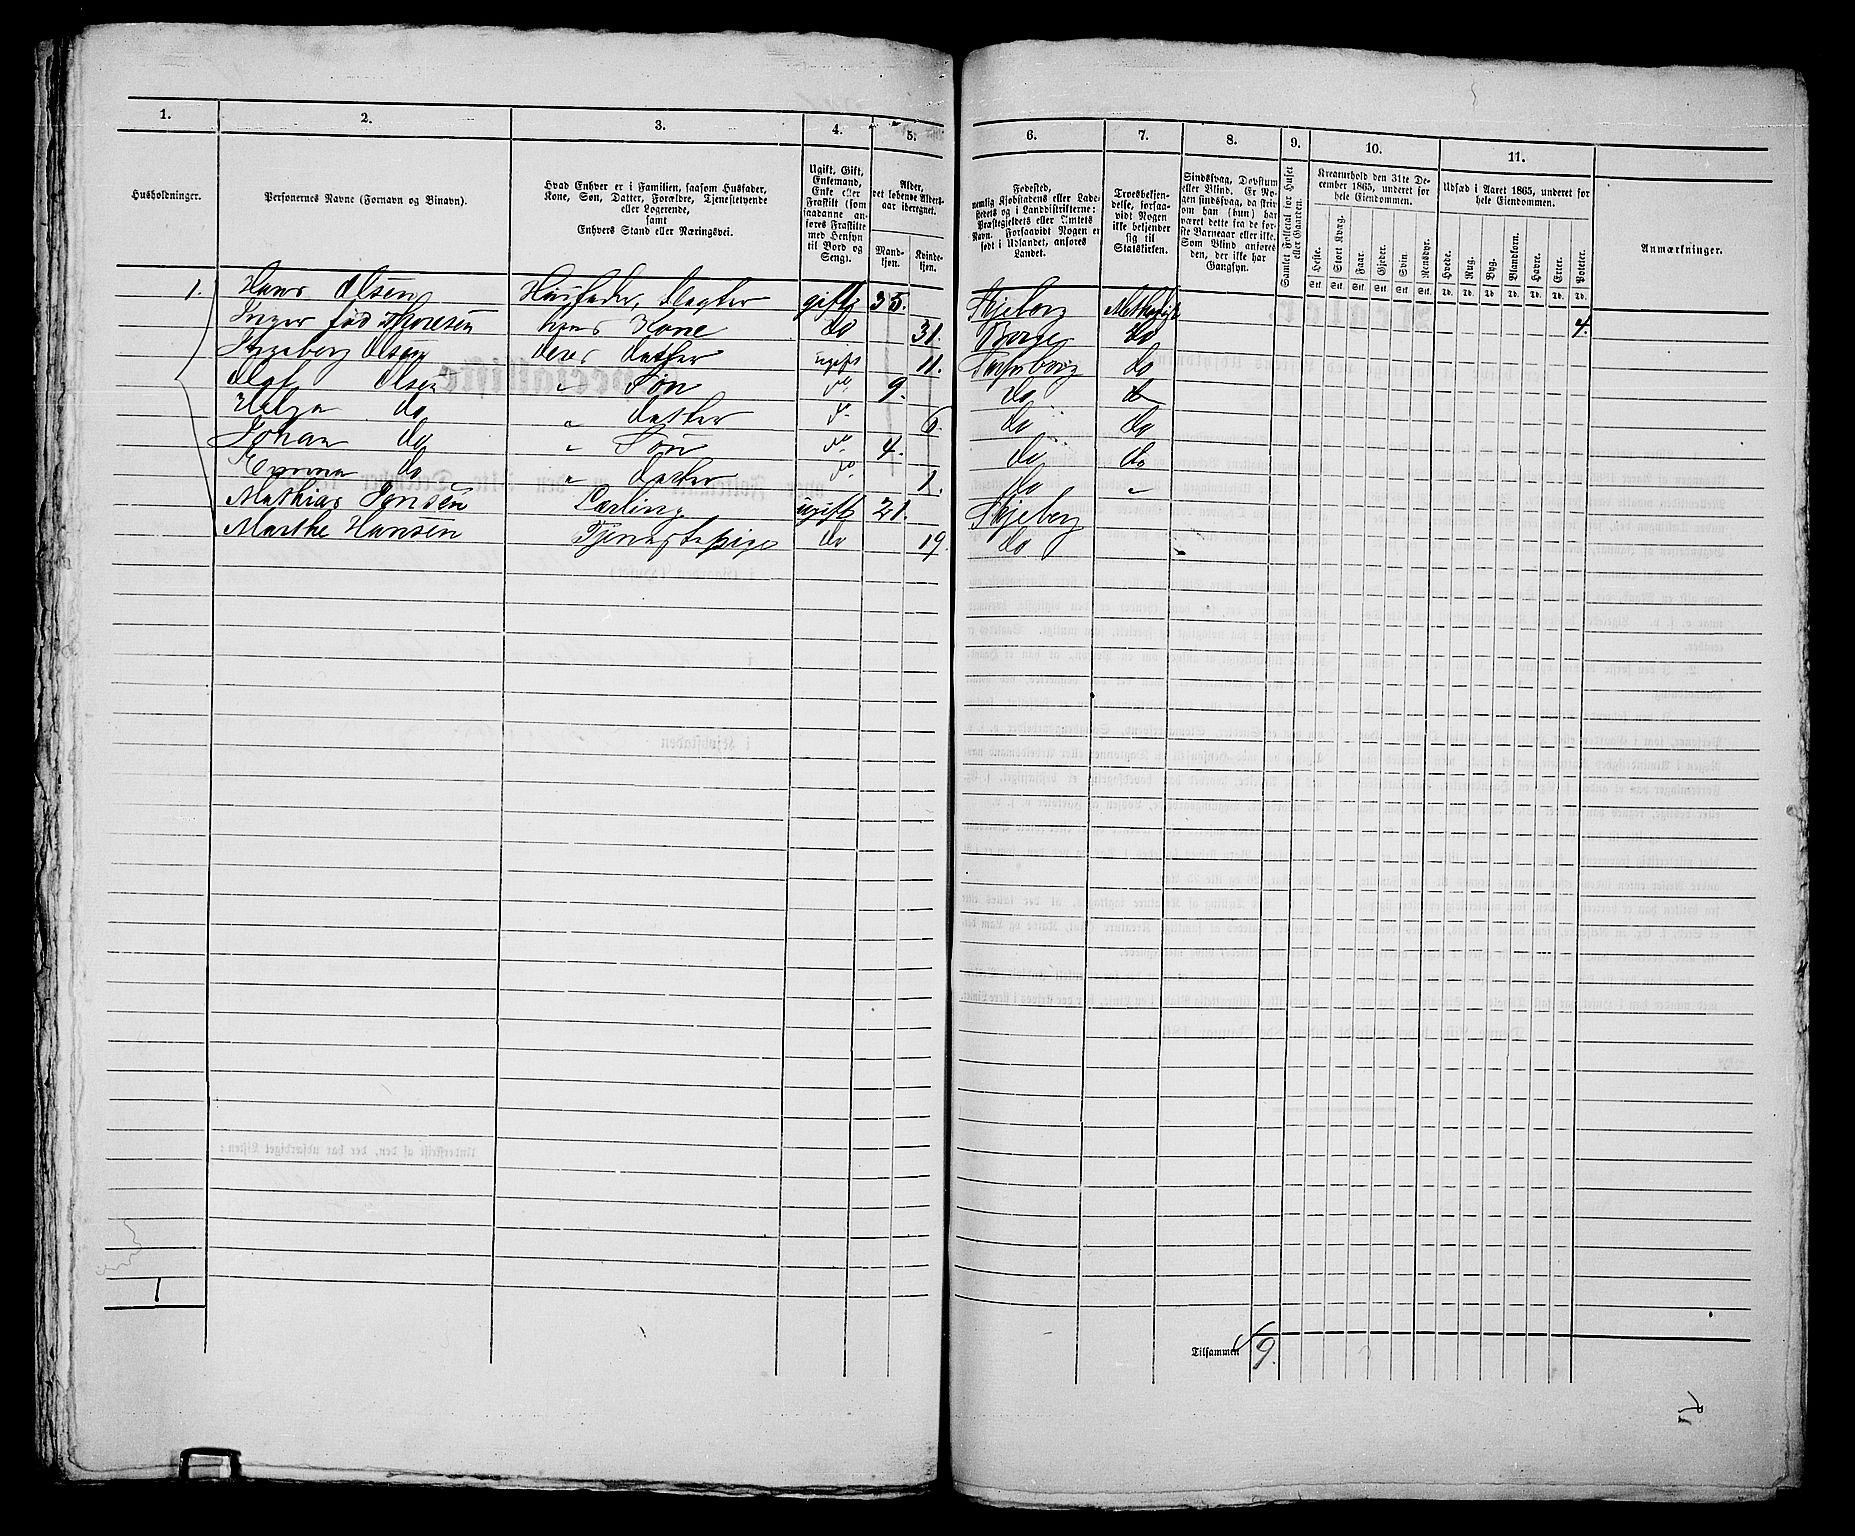 1. 2. 3. 4. 5. 6. 7. 8. 9. 10. 11.
Husholdninger.
Personernes Navne (Fornavn og Binavn).
Hvad Enhver er i Familien, saasom Husfader,
Kone, Søn, Datter, Forældre, Tjenestetyende
eller Logerende,
samt
Enhvers Stand eller Næringsvei.
Ugift, Gift,
Enkemand,
Enke eller
Fraskilt (som
saadanne an-
føres Fraskilte
med Hensyn
til Bord og
Seng).
Alder,
det løbende Alders-
aar iberegnet.
Mand-
kjøn.
Kvinde-
kjøn.
Fødested,
nemlig Kjøbstadens eller Lade-
stedets og i Landdistrikterne:
Præstegjeldets eller Amtets
Navn. Forsaavidt Nogen er
født i Udlandet, anføres
Landet.
Troesbekjen-
delse, forsaa-
vidt Nogen
ikke bekjender
sig til
Statskirken.
Sindssvag, Døvstum
eller Blind. Er No-
gen sindssvag, da skriv
om han (hun) har
været dette fra de før-
ste Barneaar eller ikke.
Som Blind anføres
den, der ikke har
Gangsyn.
Samlet Folketal for Huset
eller Gaarden.
Kreaturhold den 31te De-
cember 1865, underet for
hele Eiendommen.
Heste. Stort Kvæg. Faar. Gjeder. Svin. Rensdyr.
Stk. Stk. Stk. Stk. Stk. Stk.
Udsæd i Aaret 1865, underet for
hele Eiendommen.
Hvede. Rug. Byg. Blandkorn. Havre. Erter. Poteter.
Td. Td. Td. Td. Td. Td. Td.
Anmærkninger.
1. Hans Olsen Husfader, Slagter gift 35. Skjeberg Methodist
Inger fød Thoresen hans Kone do 31. Borge do 4.
Ingeborg Olsen deres datter ugift 11. Sarpsborg do
Olaf Olsen " Søn do 9. do do
Helga do " datter do 6. do do
Johan do " Søn do 4. do do
Emma do " datter do 1. do "
Mathias Jensen Lærling ugift 21. Skjeberg
Marthe Hansen Tjenestepige do 19. do
1
Tilsammen 9.